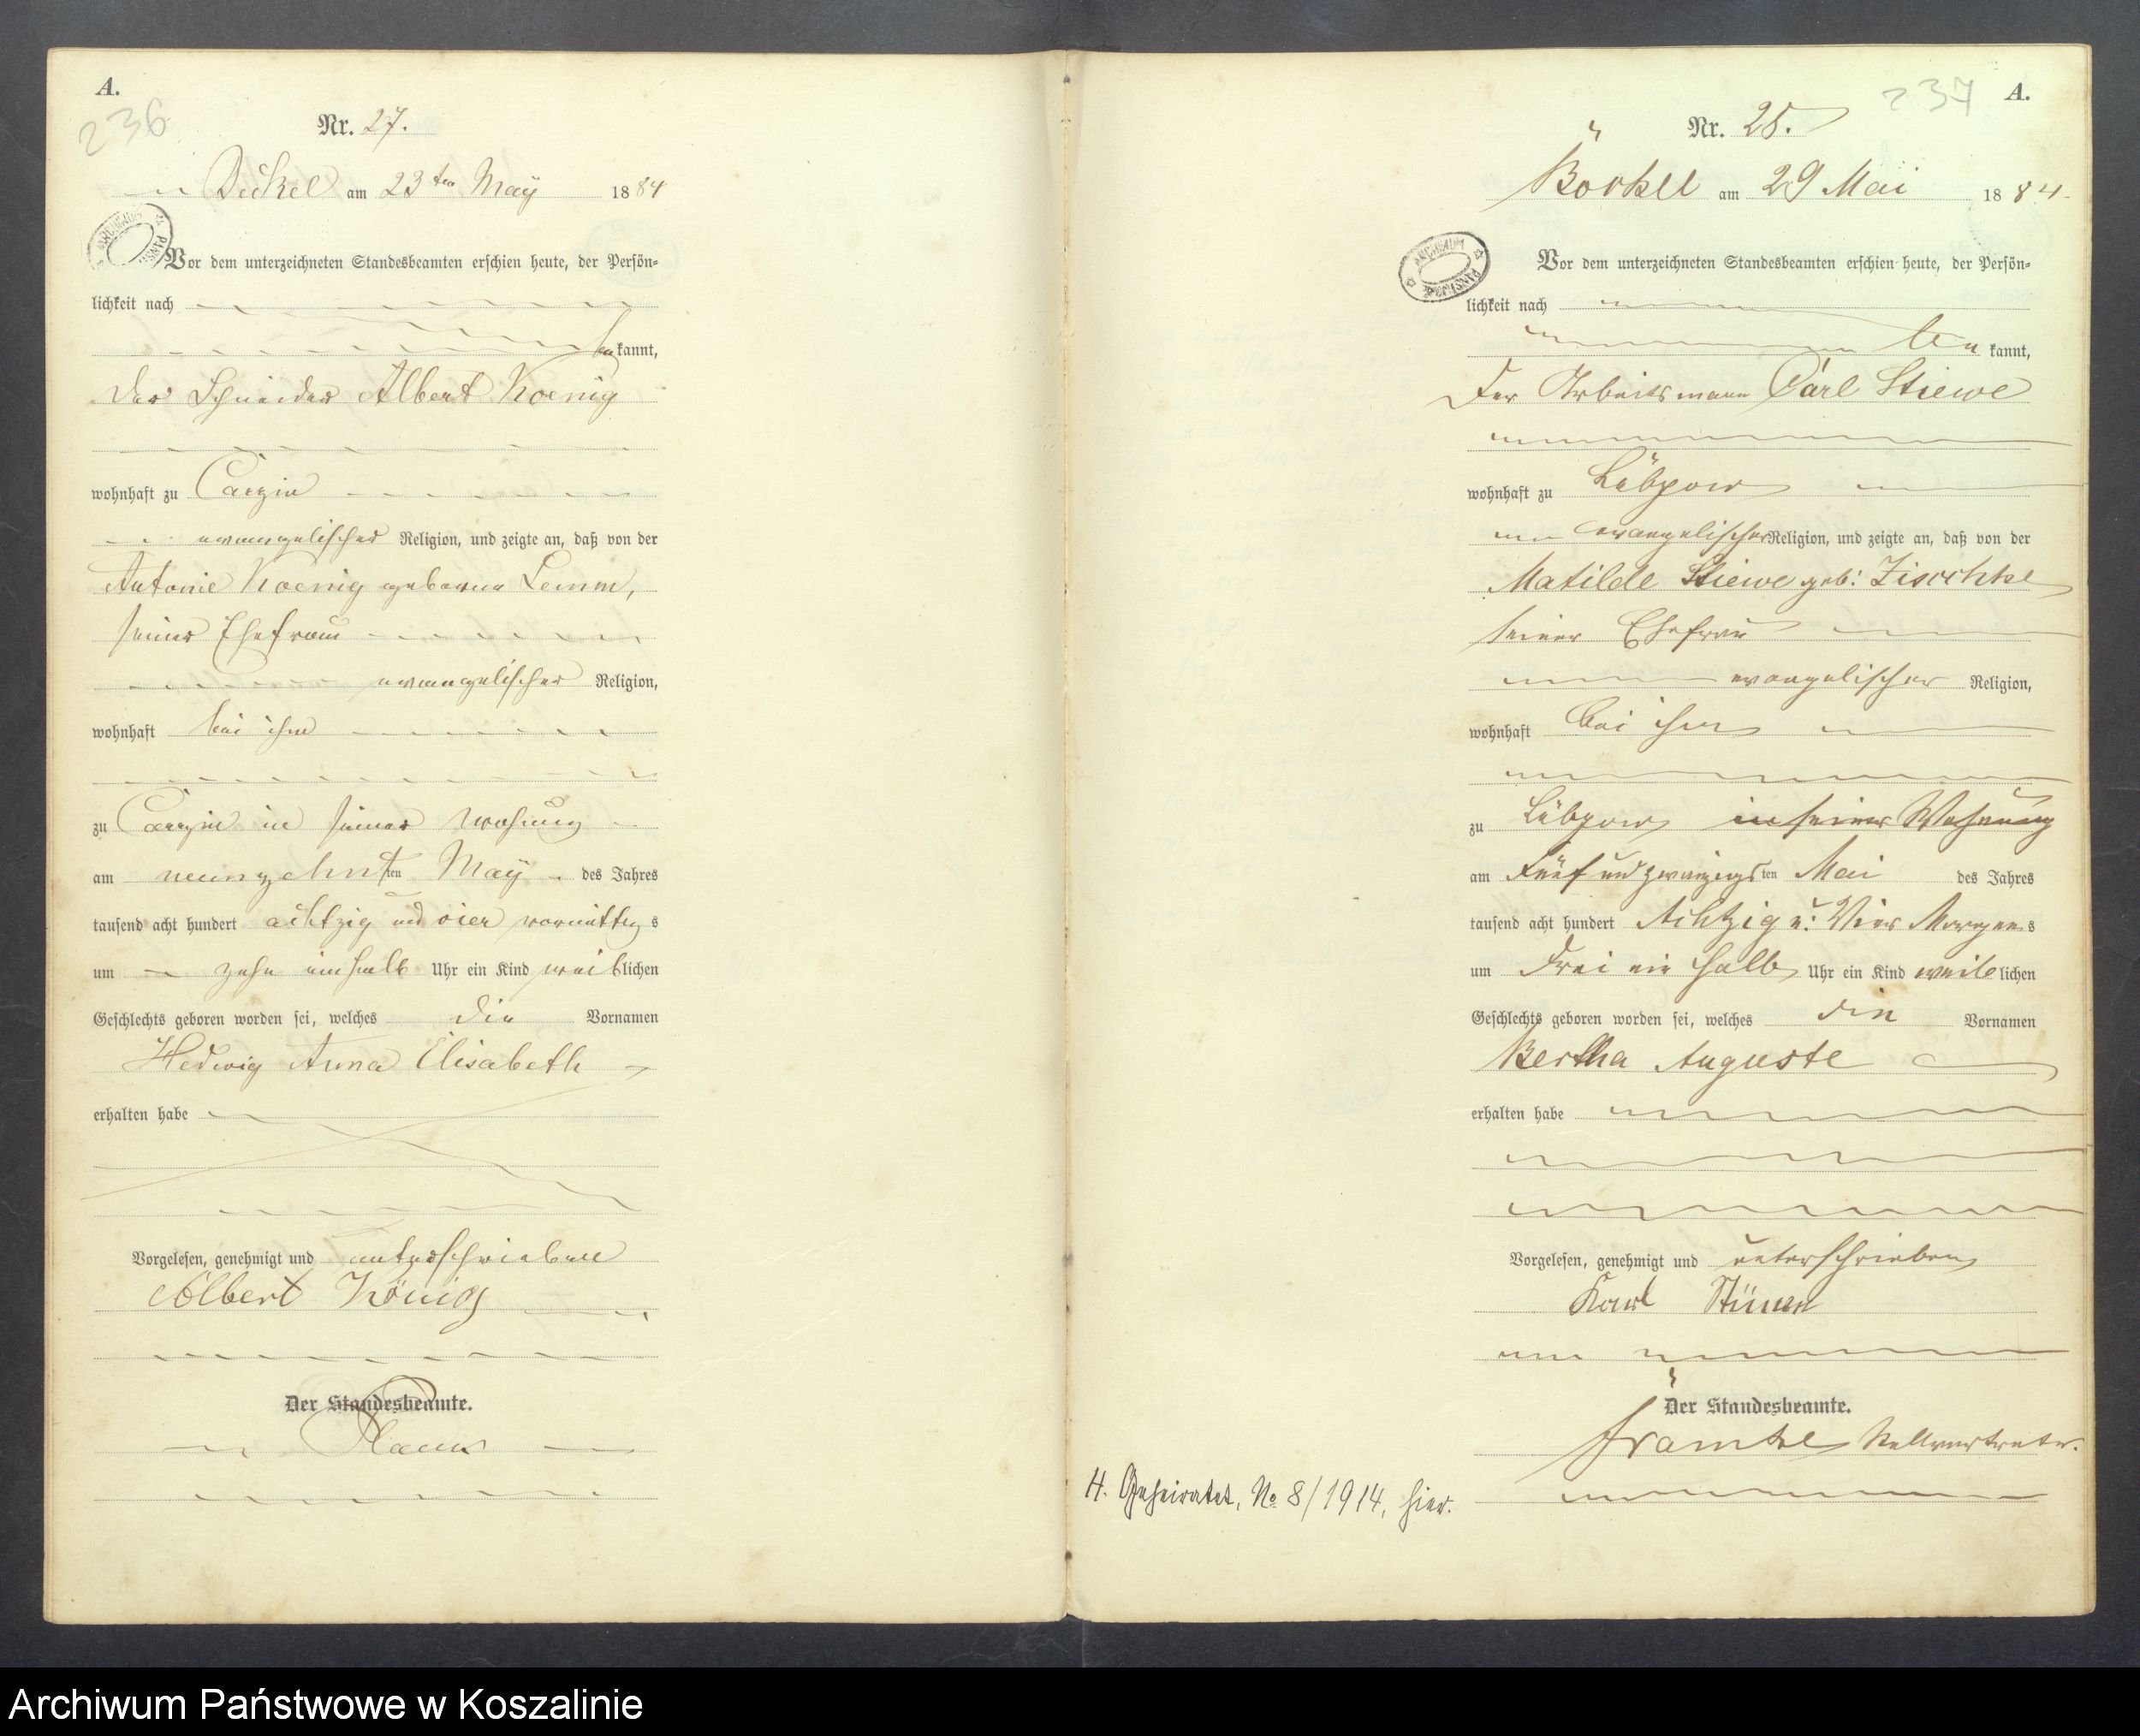 A.
236
Nr. 27.
am 23ten May 1884
Vor dem unterzeichneten Standesbeamten erschien heute, der Persön=
lichkeit nach
bekannt,
der Schneider Albert Koenig
wohnhaft zu Carzin
evangelischer Religion, und zeigte an, daß von der
Antonie Koenig geborne Lemm,
seiner Ehefrau
evangelischer Religion,
wohnhaft bei ihm
zu Carzin in seiner Wohnung
am neunzehnten May des Jahres
tausend acht hundert achtzig und vier vormittags
um zehn einhalb Uhr ein Kind weiblichen
Geschlechts geboren worden sei, welches die Vornamen
Hedwig Anna Elisabeth
erhalten habe
Vorgelesen, genehmigt und unterschrieben
Albert König
Der Standesbeamte.
A.
237
Nr. 28.
am 29 Mai 1884.
Vor dem unterzeichneten Standesbeamten erschien heute, der Persön=
lichkeit nach
bekannt,
Der Arbeitsmann Carl Stiewe
wohnhaft zu Lübzow
evangelischer Religion, und zeigte an, daß von der
Matilde Stiewe geb: Zischke
seiner Ehefrau
evangelischer Religion,
wohnhaft bei ihm
zu Lübzow in seiner Wohnung
am Fünfundzwanzigsten Mai des Jahres
tausend acht hundert Achtzig u. Vier Morgens
um Drei ein halb Uhr ein Kind weiblichen
Geschlechts geboren worden sei, welches die Vornamen
Bertha Auguste
erhalten habe
Vorgelesen, genehmigt und unterschrieben
Karl
Der Standesbeamte.
Framke Stellvertreter.
H. Geheiratet, No 8/1914, hier.
Archiwum Państwowe w Koszalinie